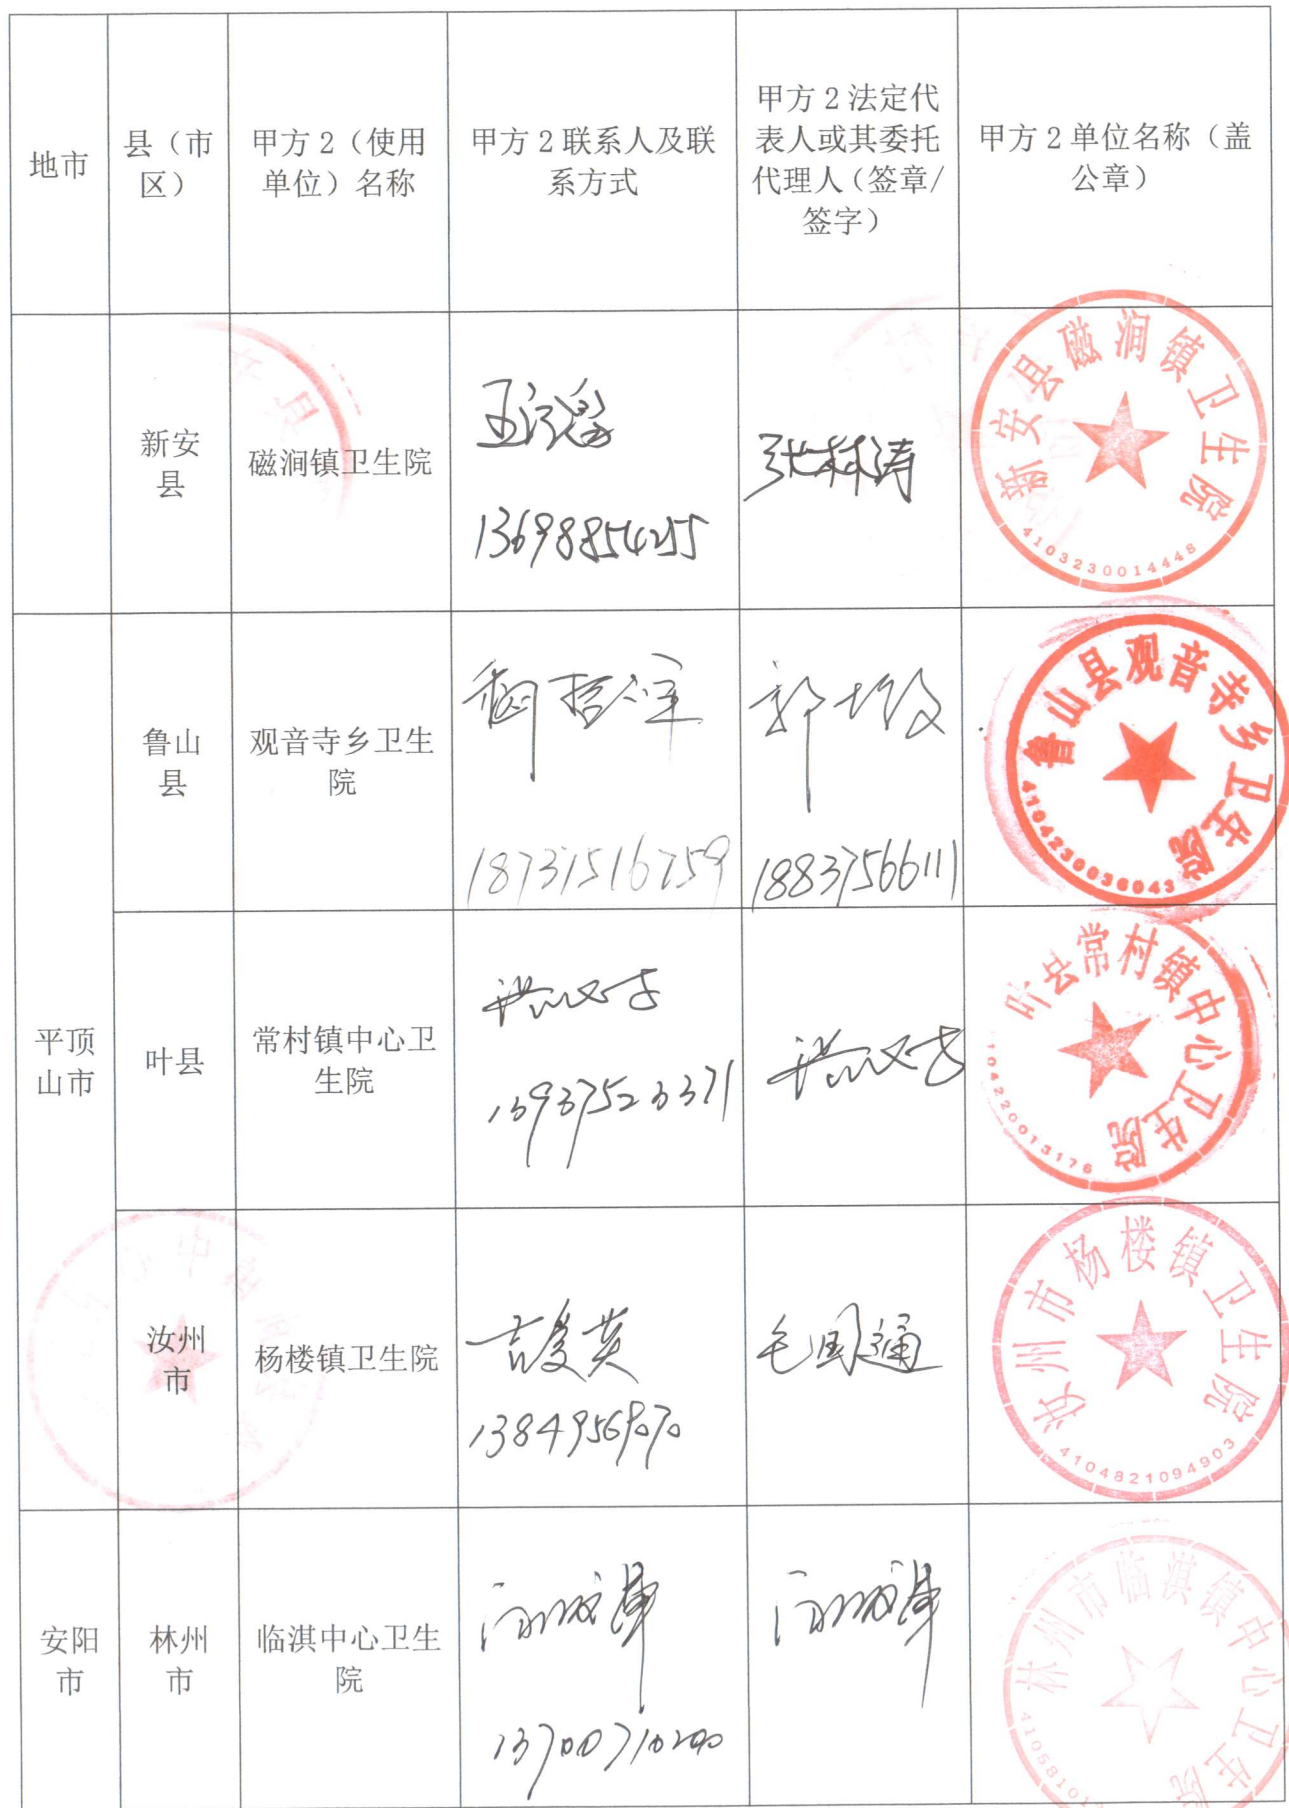 地市
县（市
区）
甲方2（使用
单位）名称
甲方2联系人及联
系方式
甲方2法定代
表人或其委托
代理人（签章/
签字）
甲方2单位名称（盖
公章）
新安
县
磁涧镇卫生院
13698854255
张林涛
新安县磁涧镇卫生院
4103230014448
平顶
山市
鲁山
县
观音寺乡卫生
院
18737516759
18837566111
鲁山县观音寺乡卫生院
4104230036043
叶县
常村镇中心卫
生院
13937523371
叶县常村镇中心卫生院
104220013176
汝州
市
杨楼镇卫生院
毛国通
汝州市杨楼镇卫生院
4104821094903
安阳
市
林州
市
临淇中心卫生
院
13700710200
林州市临淇镇中心卫生院